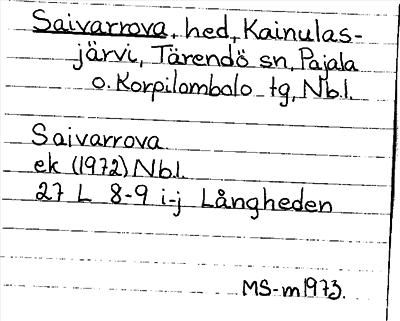 Saivarrova, hed, Kainulas-
järvi, Tärendö sn, Pajala
o. Korpilombolo tg, Nb.l.
Saivarrova
ek (1972) Nb.l.
27 L 8-9 i-j Långheden
MS-m1973.